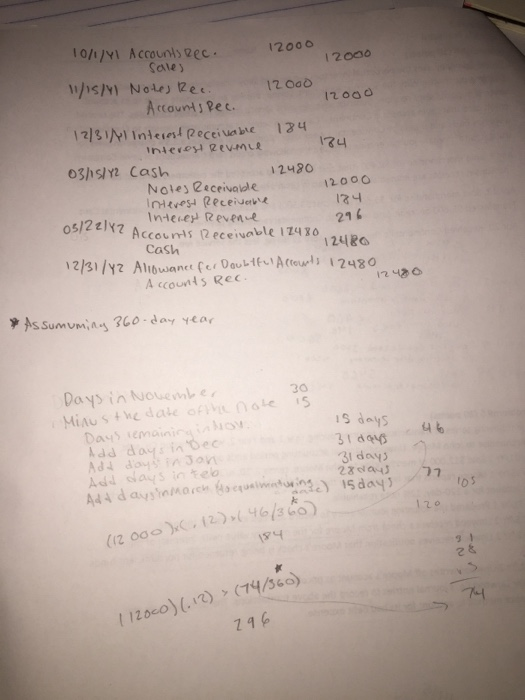 10/1/Y1 Accounts Rec. 12000
Sales 12000
11/15/Y1 Notes Rec. 12000
Accounts Rec. 12000
12/31/Y1 Interest Receivable 184
Interest Revenue 184
03/15/Y2 Cash 12480
Notes Receivable 12000
Interest Receivable 184
Interest Revenue 296
05/22/Y2 Accounts Receivable 12480
Cash 12480
12/31/Y2 Allowance for Doubtful Accounts 12480
Accounts Rec. 12480
* Assumuming 360-day year
Days in November 30
Minus the date of the note 15
Days remaining in Nov. 15 days
Add days in Dec 31 days 46
Add days in Jan 31 days
Add days in Feb 28 days 77
Add days in March 15 days 105
120
(12000)x(.12)x(46/360)*
184
31
28
15
74
(12000)(.12)x(74/360)*
296